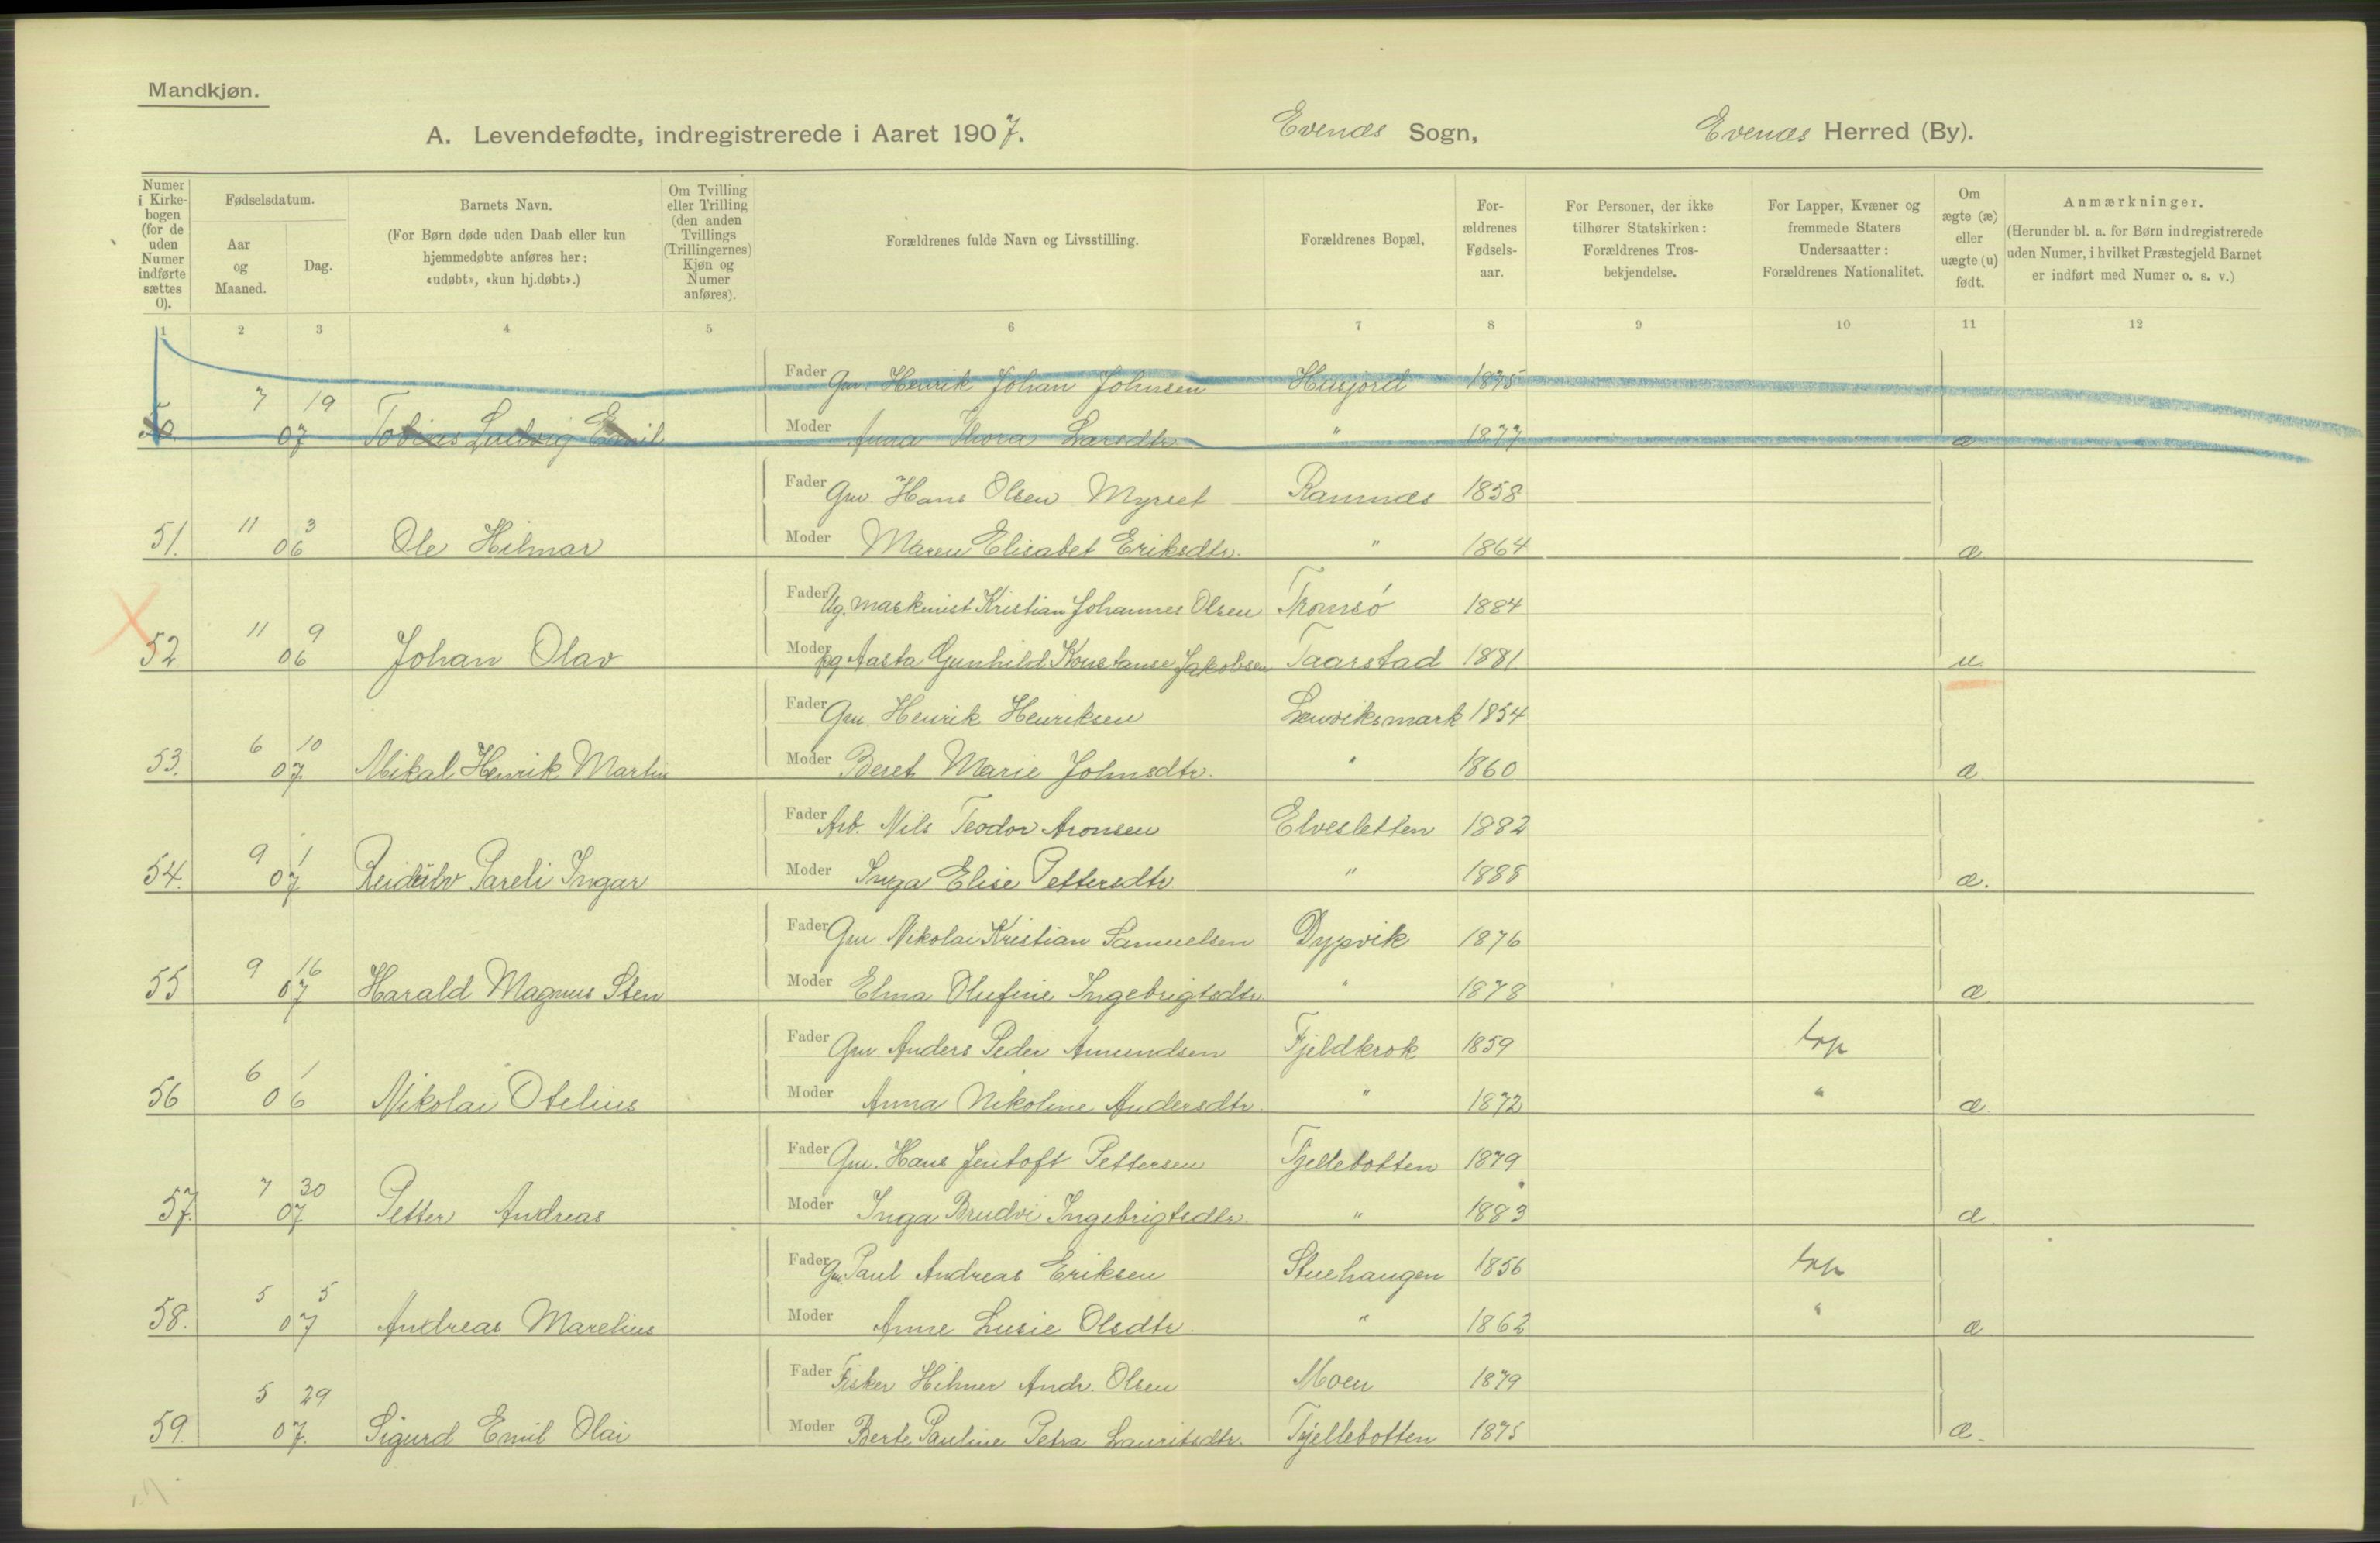 Mandkjøn.
A. Levendefødte, indregistrerede i Aaret 1907. Evenæs Sogn, Evenæs Herred (By).
Numer i Kirke-bogen (for de uden Numer indførte sættes 0).
Fødselsdatum.
Aar og Maaned.
Dag.
Barnets Navn.
(For Børn døde uden Daab eller kun hjemmedøbte anføres her: «udøbt», «kun hj.døbt».)
Om Tvilling eller Trilling (den anden Tvillings (Trillingernes) Kjøn og Numer anføres).
Forældrenes fulde Navn og Livsstilling.
Forældrenes Bopæl,
For-ældrenes Fødsels-aar.
For Personer, der ikke tilhører Statskirken: Forældrenes Tros-bekjendelse.
For Lapper, Kvæner og fremmede Staters Undersaatter: Forældrenes Nationalitet.
Om ægte (æ) eller uægte (u) født.
Anmærkninger.
(Herunder bl. a. for Børn indregistrerede uden Numer, i hvilket Præstegjeld Barnet er indført med Numer o. s. v.)
1 2 3 4 5 6 7 8 9 10 11 12
7 19 Fader Gm. Henrik Johan Johnsen Husjord 1875
50. 07 Tobias Ludvig Emil Moder Anna Thora Larsdtr. " 1877 æ
Fader Gm Hans Olsen Myrset Ramnæs 1858
11 3
51. 06 Ole Hilmar Moder Maren Elisabet Eriksdtr. " 1864 æ
Fader Ug. maskinist Kristian Johannes Olsen Tromsø 1884
11 9
52 06 Johan Olav Moder pg Aasta Gunhild Konstanse Jakobsen Taarstad 1881 u.
Fader Gm Henrik Henriksen Lenviksmark 1854
6 10
53. 07 Mikal Henrik Martin Moder Beret Marie Johnsdtr. " 1860 æ
Fader Arb. Nils Teodor Aronsen Elvesletten 1882
9 1
54. 07 Reidulv Pareli Ingar Moder Inga Elise Pettersdtr " 1888 æ.
Fader Gm Nikolai Kristian Samuelsen Dypvik 1876
9 16
55 07 Harald Magnus Sten Moder Elma Olufine Ingebrigtsdtr " 1878 æ
Fader Gm Anders Peder Amundsen Fjeldkrok 1859 lap
6 1
56 06 Nikolai Otelius Moder Anna Nikoline Andersdtr. " 1872 " æ
Fader Gm. Hans Jentoft Pettersen Fjellebotten 1879
7 30
57. 07 Petter Andreas Moder Inga Brudvi Ingebrigtsdtr. " 1883 æ.
Fader Gm. Paul Andreas Eriksen Stuehaugen 1856 lap
5 5
58. 07 Andreas Marelius Moder Anne Lusie Olsdtr. " 1862 " æ
Fader Fisker Hilmer Andr. Olsen Moen 1879
5 29
59. 07. Sigurd Emil Olai Moder Berte Pauline Petra Lauritsdtr. Fjellebotten 1875 æ.